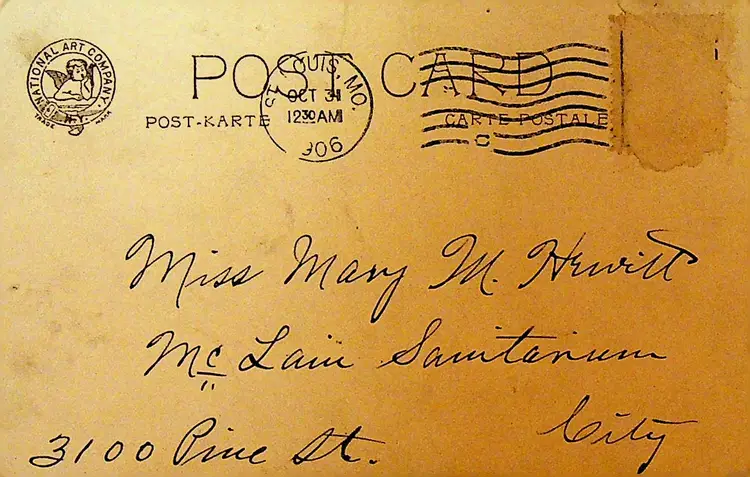 NATIONAL ART COMPANY.
N.Y.
TRADE MARK
POST CARD
POST-KARTE CARTE POSTALE
ST. LOUIS, MO.
OCT 31
12 30 AM
1906
C
Miss Mary M. Hewitt
Mc Lain Sanitarium
City
3100 Pine St.